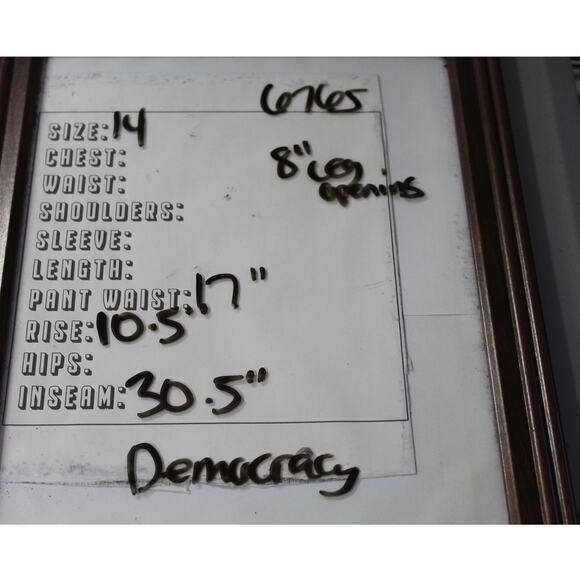 6765
SIZE: 14
CHEST:
8" Leg
WAIST:
opening
SHOULDERS:
SLEEVE:
LENGTH:
PANT WAIST: 17"
RISE: 10.5"
HIPS:
INSEAM: 30.5"
Democracy